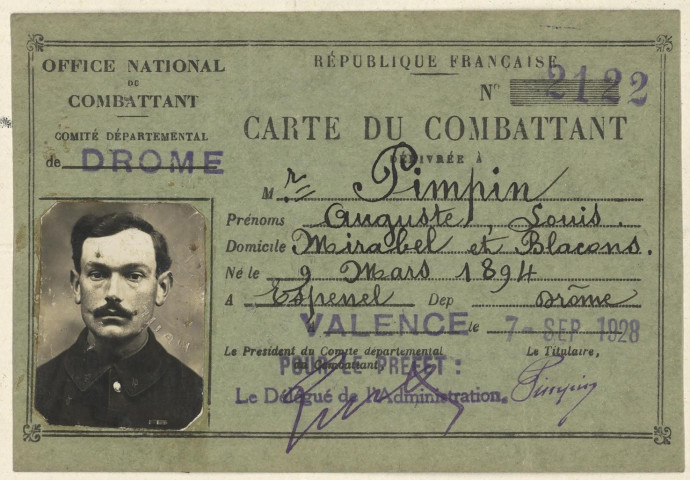 OFFICE NATIONAL
DU
COMBATTANT
COMITÉ DÉPARTEMENTAL
de DROME
RÉPUBLIQUE FRANÇAISE
N° 2122
CARTE DU COMBATTANT
DÉLIVRÉE À
M r Pimpin
Prénoms Auguste, Louis.
Domicile Mirabel et Blacons.
Né le 9 Mars 1894
A Espenel Dep Drôme
A VALENCE le 7 - SEP 1928
Le Président du Comité départemental
du Combattant,
Le Titulaire,
POUR LE PRÉFET :
Le Délégué de l'Administration,
Pimpin